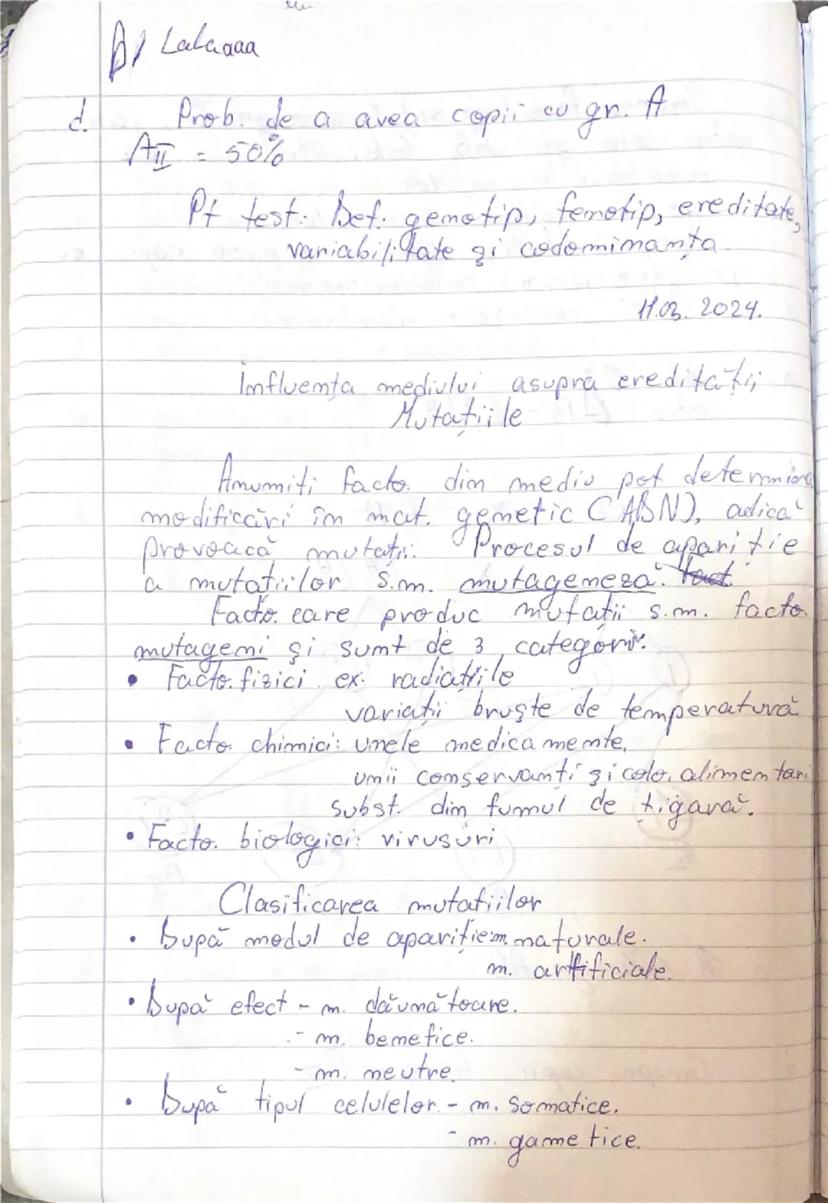 B/ Lalaaaa
d. Prob. de a avea copii cu gr. A
AII = 50%
Pt test: Def: genotip, fenotip, ereditate,
variabilitate și codominanța.
11.03.2024.
Influența mediului asupra eredității
Mutațiile
Anumiți facto. din mediu pot determina
modificări în mat. genetic (ADN), adică
provoacă mutații. Procesul de apariție
a mutațiilor s.m. mutageneza.
Facto. care produc mutații s.m. facto.
mutageni și sunt de 3 categorii:
• Facto. fizici ex: radiațiile
variații bruște de temperatură
• Facto. chimici: unele medicamente,
unii conservanți și colo. alimentari
subst. din fumul de țigară.
• Facto. biologici: virusuri
Clasificarea mutațiilor
• După modul de apariție: m. naturale.
m. artificiale.
• După efect - m. dăunătoare.
- m. benefice.
- m. neutre.
• După tipul celulelor - m. somatice.
- m. gametice.